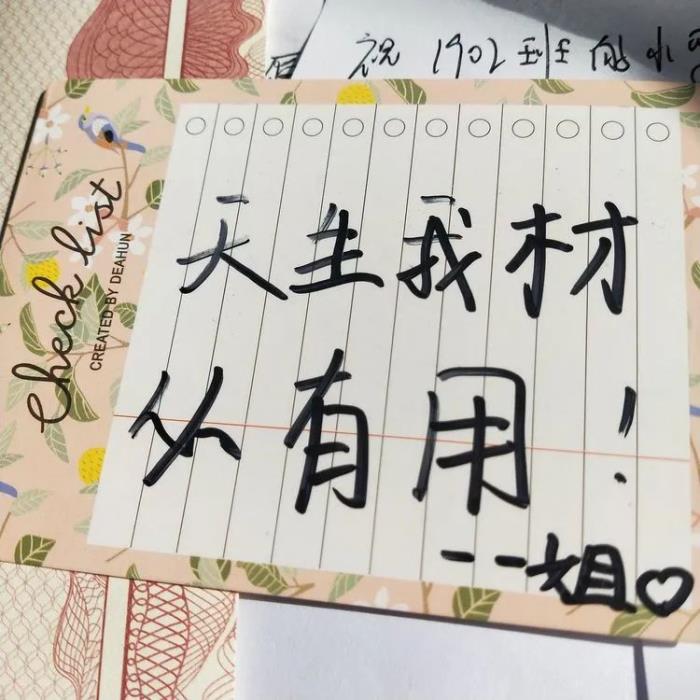 祝 1902班的小
Check list
CREATED BY DEAHUN
天生我材
必有用！
一一姐♡